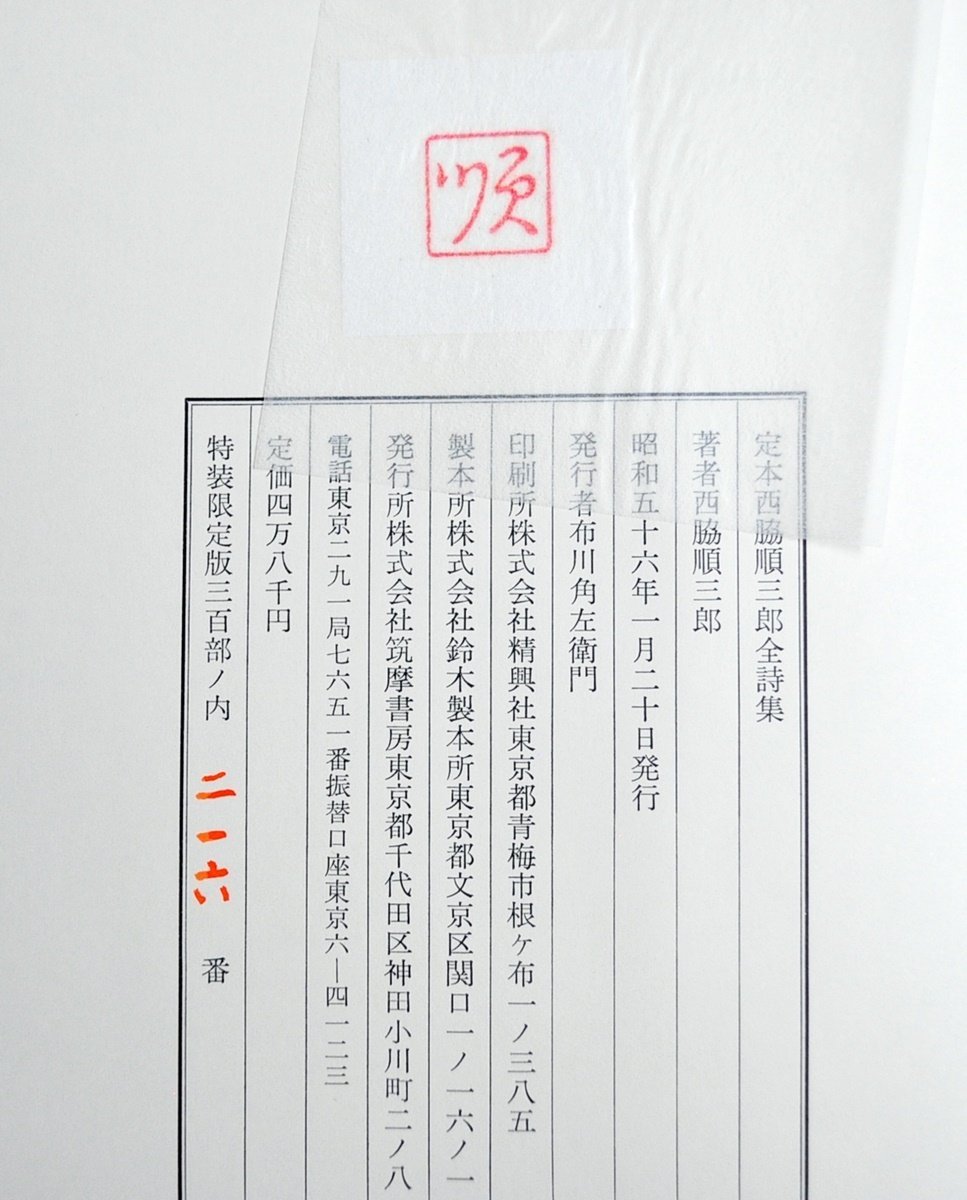 順
定本西脇順三郎全詩集
著者西脇順三郎
昭和五十六年一月二十日発行
発行者布川角左衛門
印刷所株式会社精興社東京都青梅市根ケ布一ノ三八五
製本所株式会社鈴木製本所東京都文京区関口一ノ一六ノ一
発行所株式会社筑摩書房東京都千代田区神田小川町二ノ八
電話東京二九一局七六五一番振替口座東京六―四一二三
定価四万八千円
特装限定版三百部ノ内 二一六 番